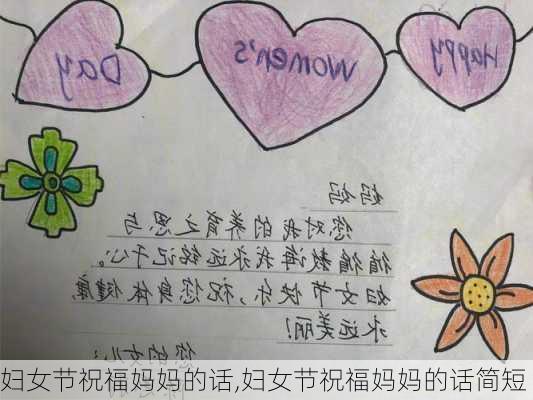 Happy
Women's
Day
妈妈
您对我的养育之恩与
谆谆教诲我永远铭记于心。
妇女节快乐,祝您身体健康,
永远美丽!
您的女儿:
妇女节祝福妈妈的话,妇女节祝福妈妈的话简短